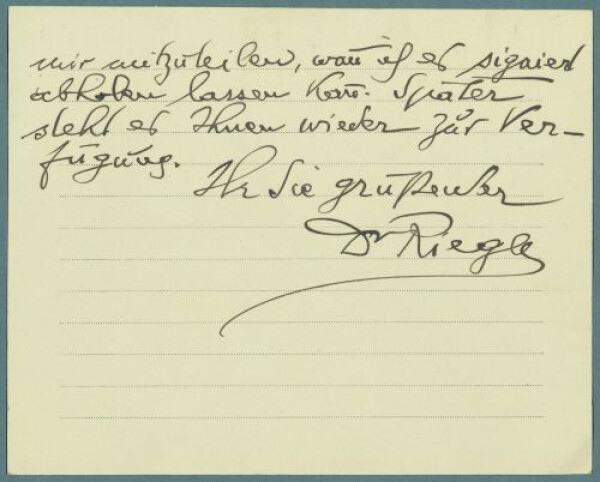 mir mitzuteilen, wann ich es signiert
abholen lassen kann. Später
steht es Ihnen wieder zur Ver-
fügung.
Ihr Sie grüßender
Dr Riegl